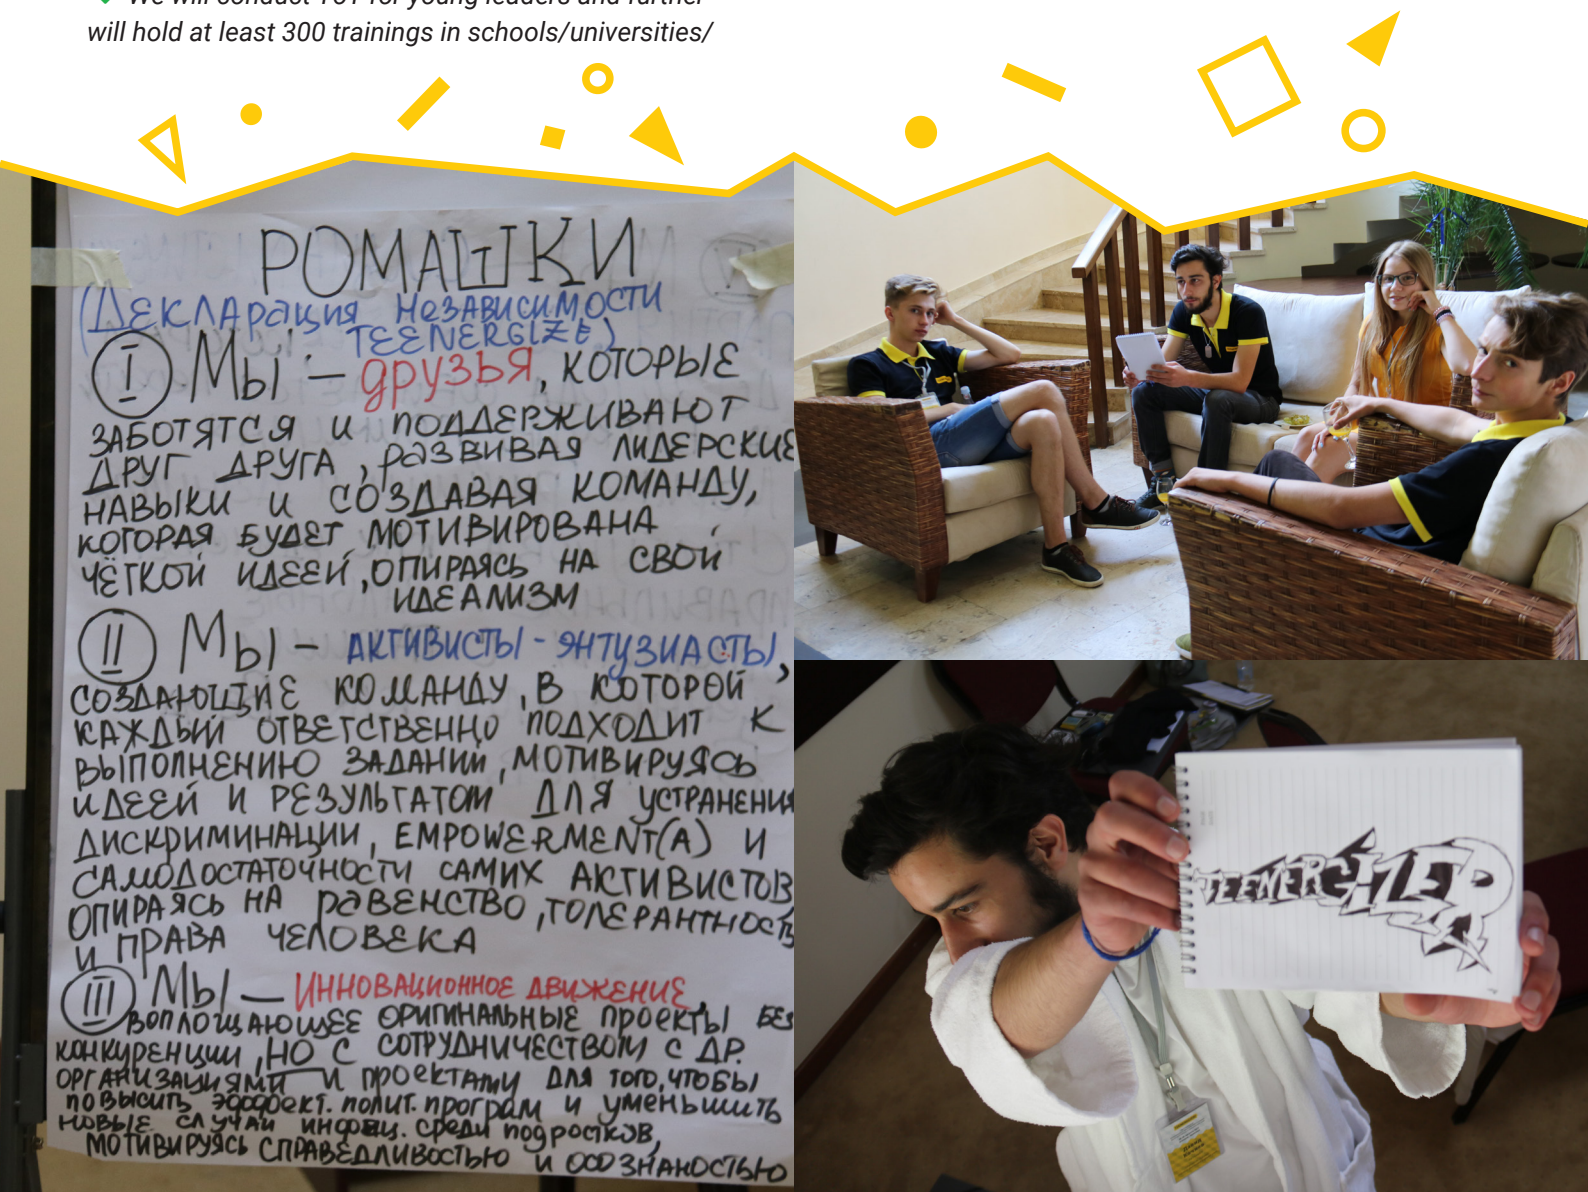 We will conduct TOT for young leaders and further
will hold at least 300 trainings in schools/universities/
РОМАШКИ
(ДЕКЛАРАЦИЯ НЕЗАВИСИМОСТИ
TEENERGIZE)
I МЫ – друзья, КОТОРЫЕ
ЗАБОТЯТСЯ И ПОДДЕРЖИВАЮТ
ДРУГ ДРУГА, РАЗВИВАЯ ЛИДЕРСКИЕ
НАВЫКИ И СОЗДАВАЯ КОМАНДУ,
КОТОРАЯ БУДЕТ МОТИВИРОВАНА
ЧЁТКОЙ ИДЕЕЙ, ОПИРАЯСЬ НА СВОЙ
ИДЕАЛИЗМ
II МЫ – АКТИВИСТЫ - ЭНТУЗИАСТЫ,
СОЗДАЮЩИЕ КОМАНДУ, В КОТОРОЙ
КАЖДЫЙ ОТВЕТСТВЕННО ПОДХОДИТ К
ВЫПОЛНЕНИЮ ЗАДАНИЙ, МОТИВИРУЯСЬ
ИДЕЕЙ И РЕЗУЛЬТАТОМ ДЛЯ УСТРАНЕНИЯ
ДИСКРИМИНАЦИИ, EMPOWERMENT(А) И
САМОДОСТАТОЧНОСТИ САМИХ АКТИВИСТОВ
ОПИРАЯСЬ НА РАВЕНСТВО, ТОЛЕРАНТНОСТЬ
И ПРАВА ЧЕЛОВЕКА
III МЫ – ИННОВАЦИОННОЕ ДВИЖЕНИЕ,
ВОПЛОЩАЮЩЕЕ ОРИГИНАЛЬНЫЕ ПРОЕКТЫ БЕЗ
КОНКУРЕНЦИИ, НО С СОТРУДНИЧЕСТВОМ С ДР.
ОРГАНИЗАЦИЯМИ И ПРОЕКТАМИ ДЛЯ ТОГО, ЧТОБЫ
ПОВЫСИТЬ ЭФФЕКТ. ПОЛИТ. ПРОГРАМ И УМЕНЬШИТЬ
НОВЫЕ СЛУЧАИ ИНФЕЦ. СРЕДИ ПОДРОСТКОВ,
МОТИВИРУЯСЬ СПРАВЕДЛИВОСТЬЮ И ОСОЗНАНОСТЬЮ
TEENERGIZER